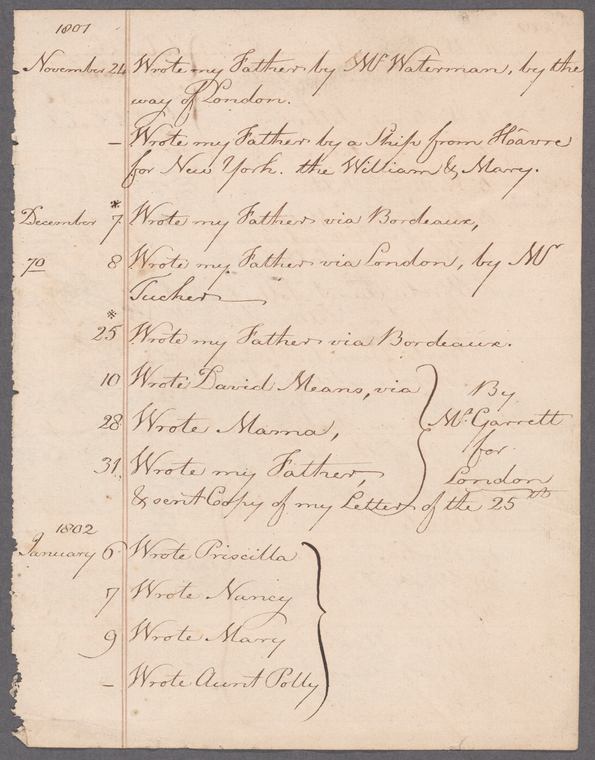 1801
November 24 Wrote my Father by Mr Waterman, by the
way of London.
– Wrote my Father by a Ship from Hâvre
for New York. the William & Mary.
*
December 7 Wrote my Father via Bordeaux,
8 Wrote my Father via London, by Mr
Tucker
*
25 Wrote my Father via Bordeaux.
10 Wrote David Means, via
28 Wrote Mama,
31, Wrote my Father,
& sent Copy of my Letter of the 25th
By
Mr Garrett
for
London
1802
January 6 Wrote Priscilla
7 Wrote Nancy
9 Wrote Mary
– Wrote Aunt Polly